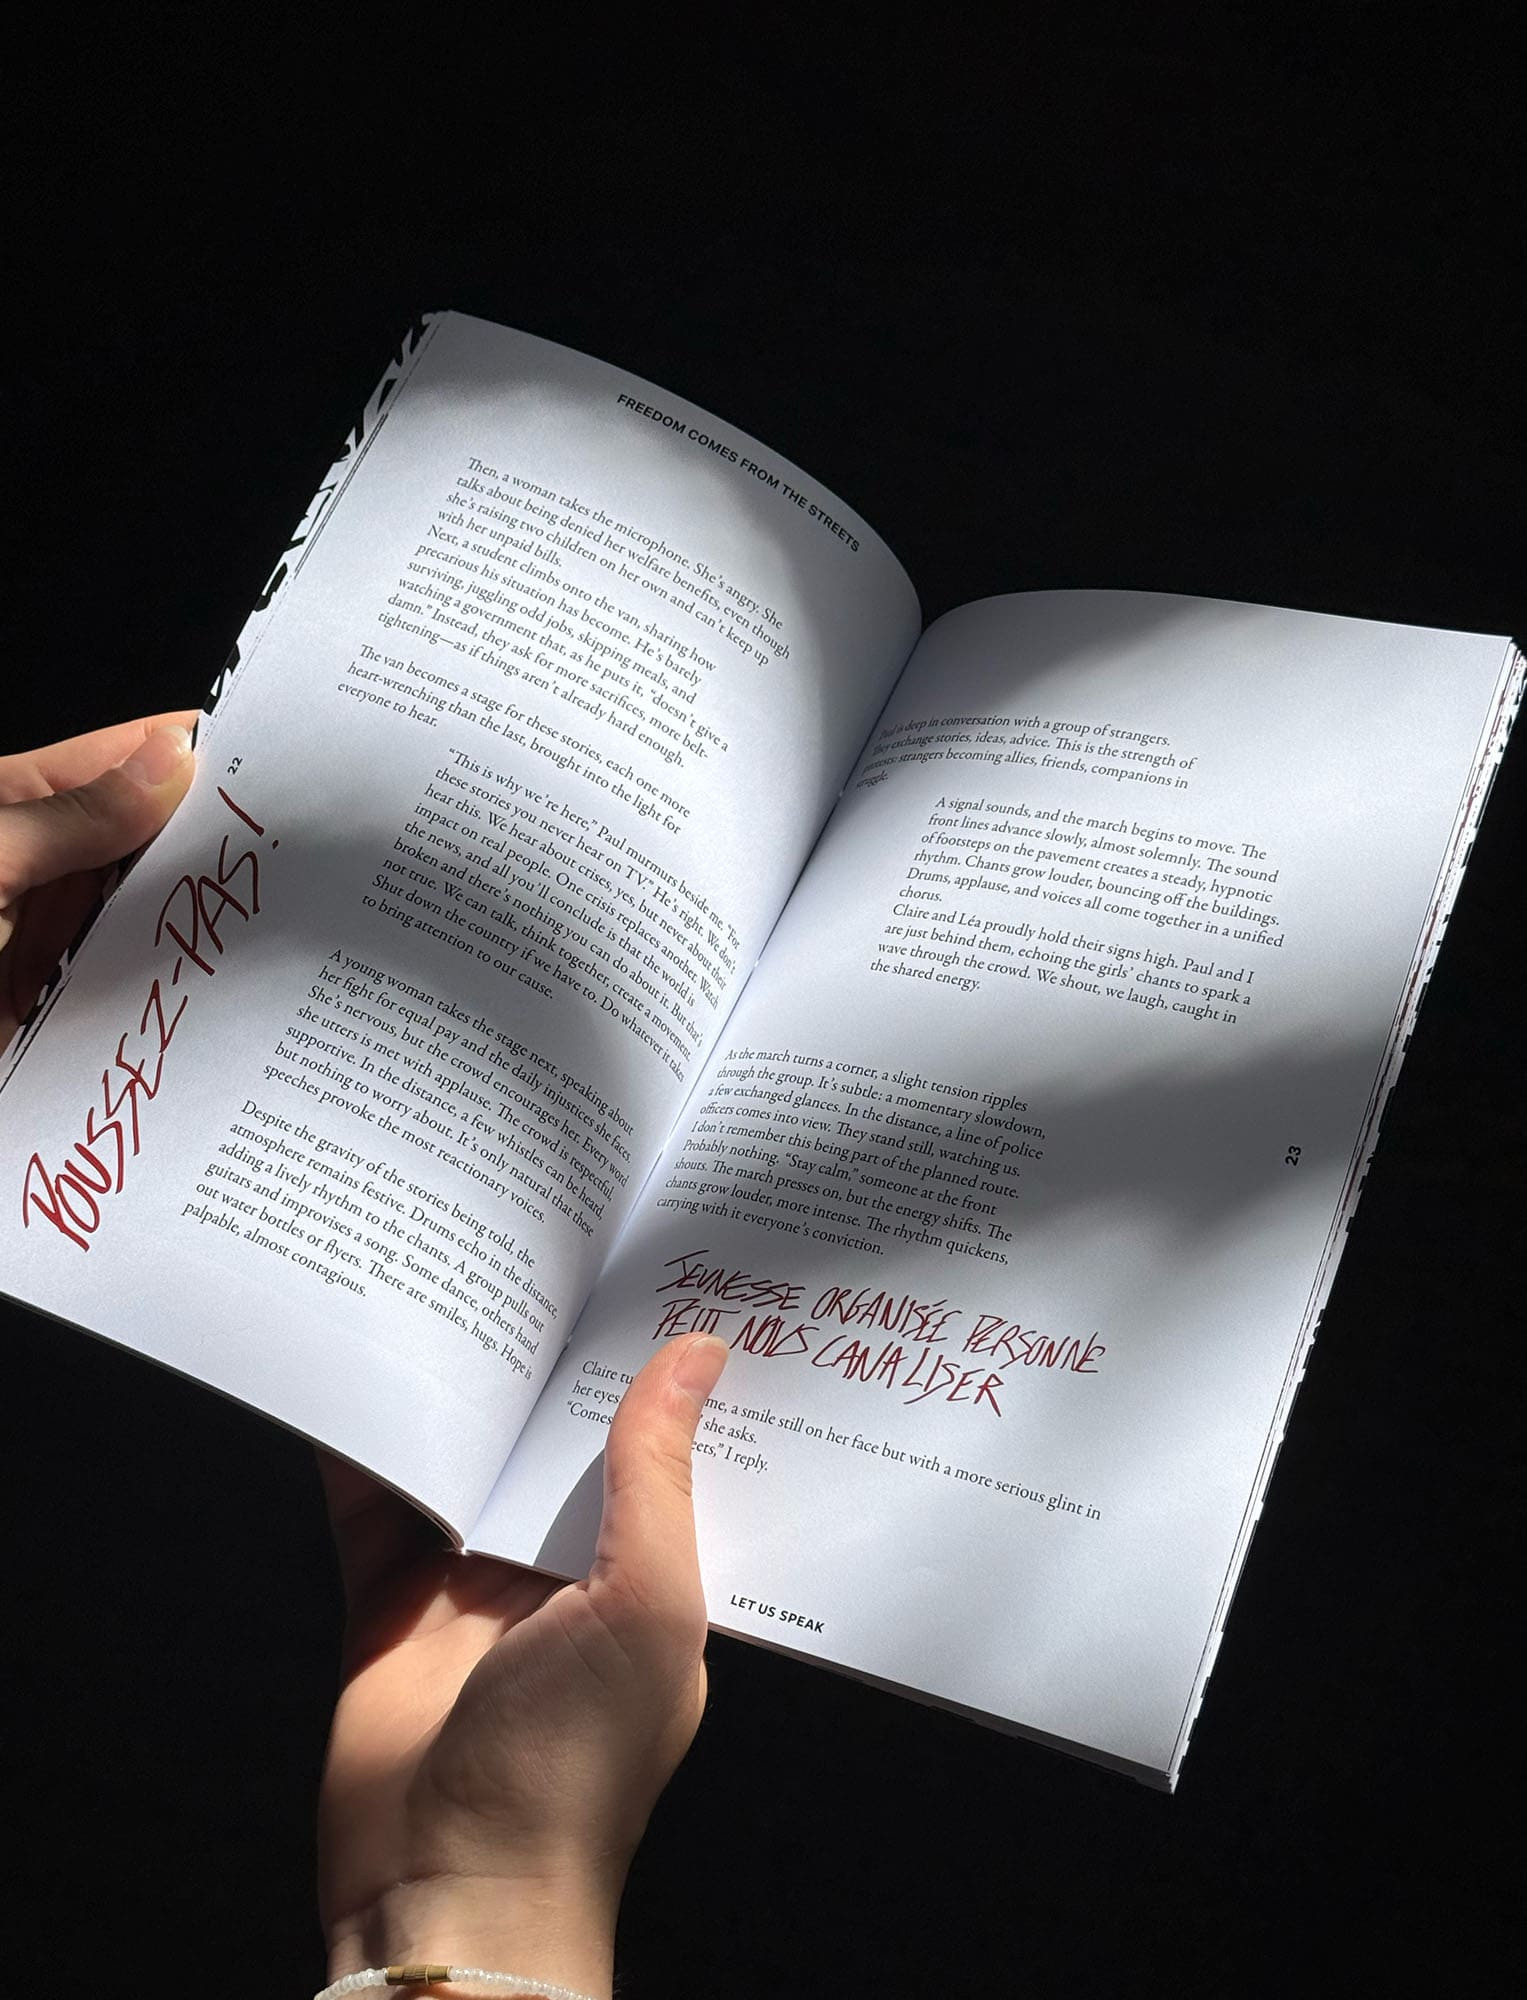 FREEDOM COMES FROM THE STREETS
Then, a woman takes the microphone. She's angry. She
talks about being denied her welfare benefits, even though
she's raising two children on her own and can't keep up
with her unpaid bills.
Next, a student climbs onto the van, sharing how
precarious his situation has become. He's barely
surviving, juggling odd jobs, skipping meals, and
watching a government that, as he puts it, “doesn't give a
damn.” Instead, they ask for more sacrifices, more belt-
tightening—as if things aren't already hard enough.
The van becomes a stage for these stories, each one more
heart-wrenching than the last, brought into the light for
everyone to hear.
“This is why we're here,” Paul murmurs beside me. “For
these stories you never hear on TV.” He's right. We don't
hear this. We hear about crises, yes, but never about their
impact on real people. One crisis replaces another. Watch
the news, and all you'll conclude is that the world is
broken and there's nothing you can do about it. But that's
not true. We can talk, think together, create a movement.
Shut down the country if we have to. Do whatever it takes
to bring attention to our cause.
A young woman takes the stage next, speaking about
her fight for equal pay and the daily injustices she faces.
She's nervous, but the crowd encourages her. Every word
she utters is met with applause. The crowd is respectful,
supportive. In the distance, a few whistles can be heard,
but nothing to worry about. It's only natural that these
speeches provoke the most reactionary voices.
Despite the gravity of the stories being told, the
atmosphere remains festive. Drums echo in the distance,
adding a lively rhythm to the chants. A group pulls out
guitars and improvises a song. Some dance, others hand
out water bottles or flyers. There are smiles, hugs. Hope is
palpable, almost contagious.
22
POUSSEZ-PAS!
Paul is deep in conversation with a group of strangers.
They exchange stories, ideas, advice. This is the strength of
protests: strangers becoming allies, friends, companions in
struggle.
A signal sounds, and the march begins to move. The
front lines advance slowly, almost solemnly. The sound
of footsteps on the pavement creates a steady, hypnotic
rhythm. Chants grow louder, bouncing off the buildings.
Drums, applause, and voices all come together in a unified
chorus.
Claire and Léa proudly hold their signs high. Paul and I
are just behind them, echoing the girls' chants to spark a
wave through the crowd. We shout, we laugh, caught in
the shared energy.
As the march turns a corner, a slight tension ripples
through the group. It's subtle: a momentary slowdown,
a few exchanged glances. In the distance, a line of police
officers comes into view. They stand still, watching us.
I don't remember this being part of the planned route.
Probably nothing. “Stay calm,” someone at the front
shouts. The march presses on, but the energy shifts. The
chants grow louder, more intense. The rhythm quickens,
carrying with it everyone's conviction.
JEUNESSE ORGANISÉE PERSONNE
PEUT NOUS CANALISER
Claire me, a smile still on her face but with a more serious glint in
her eyes she asks.
“Comes I reply.
23
LET US SPEAK